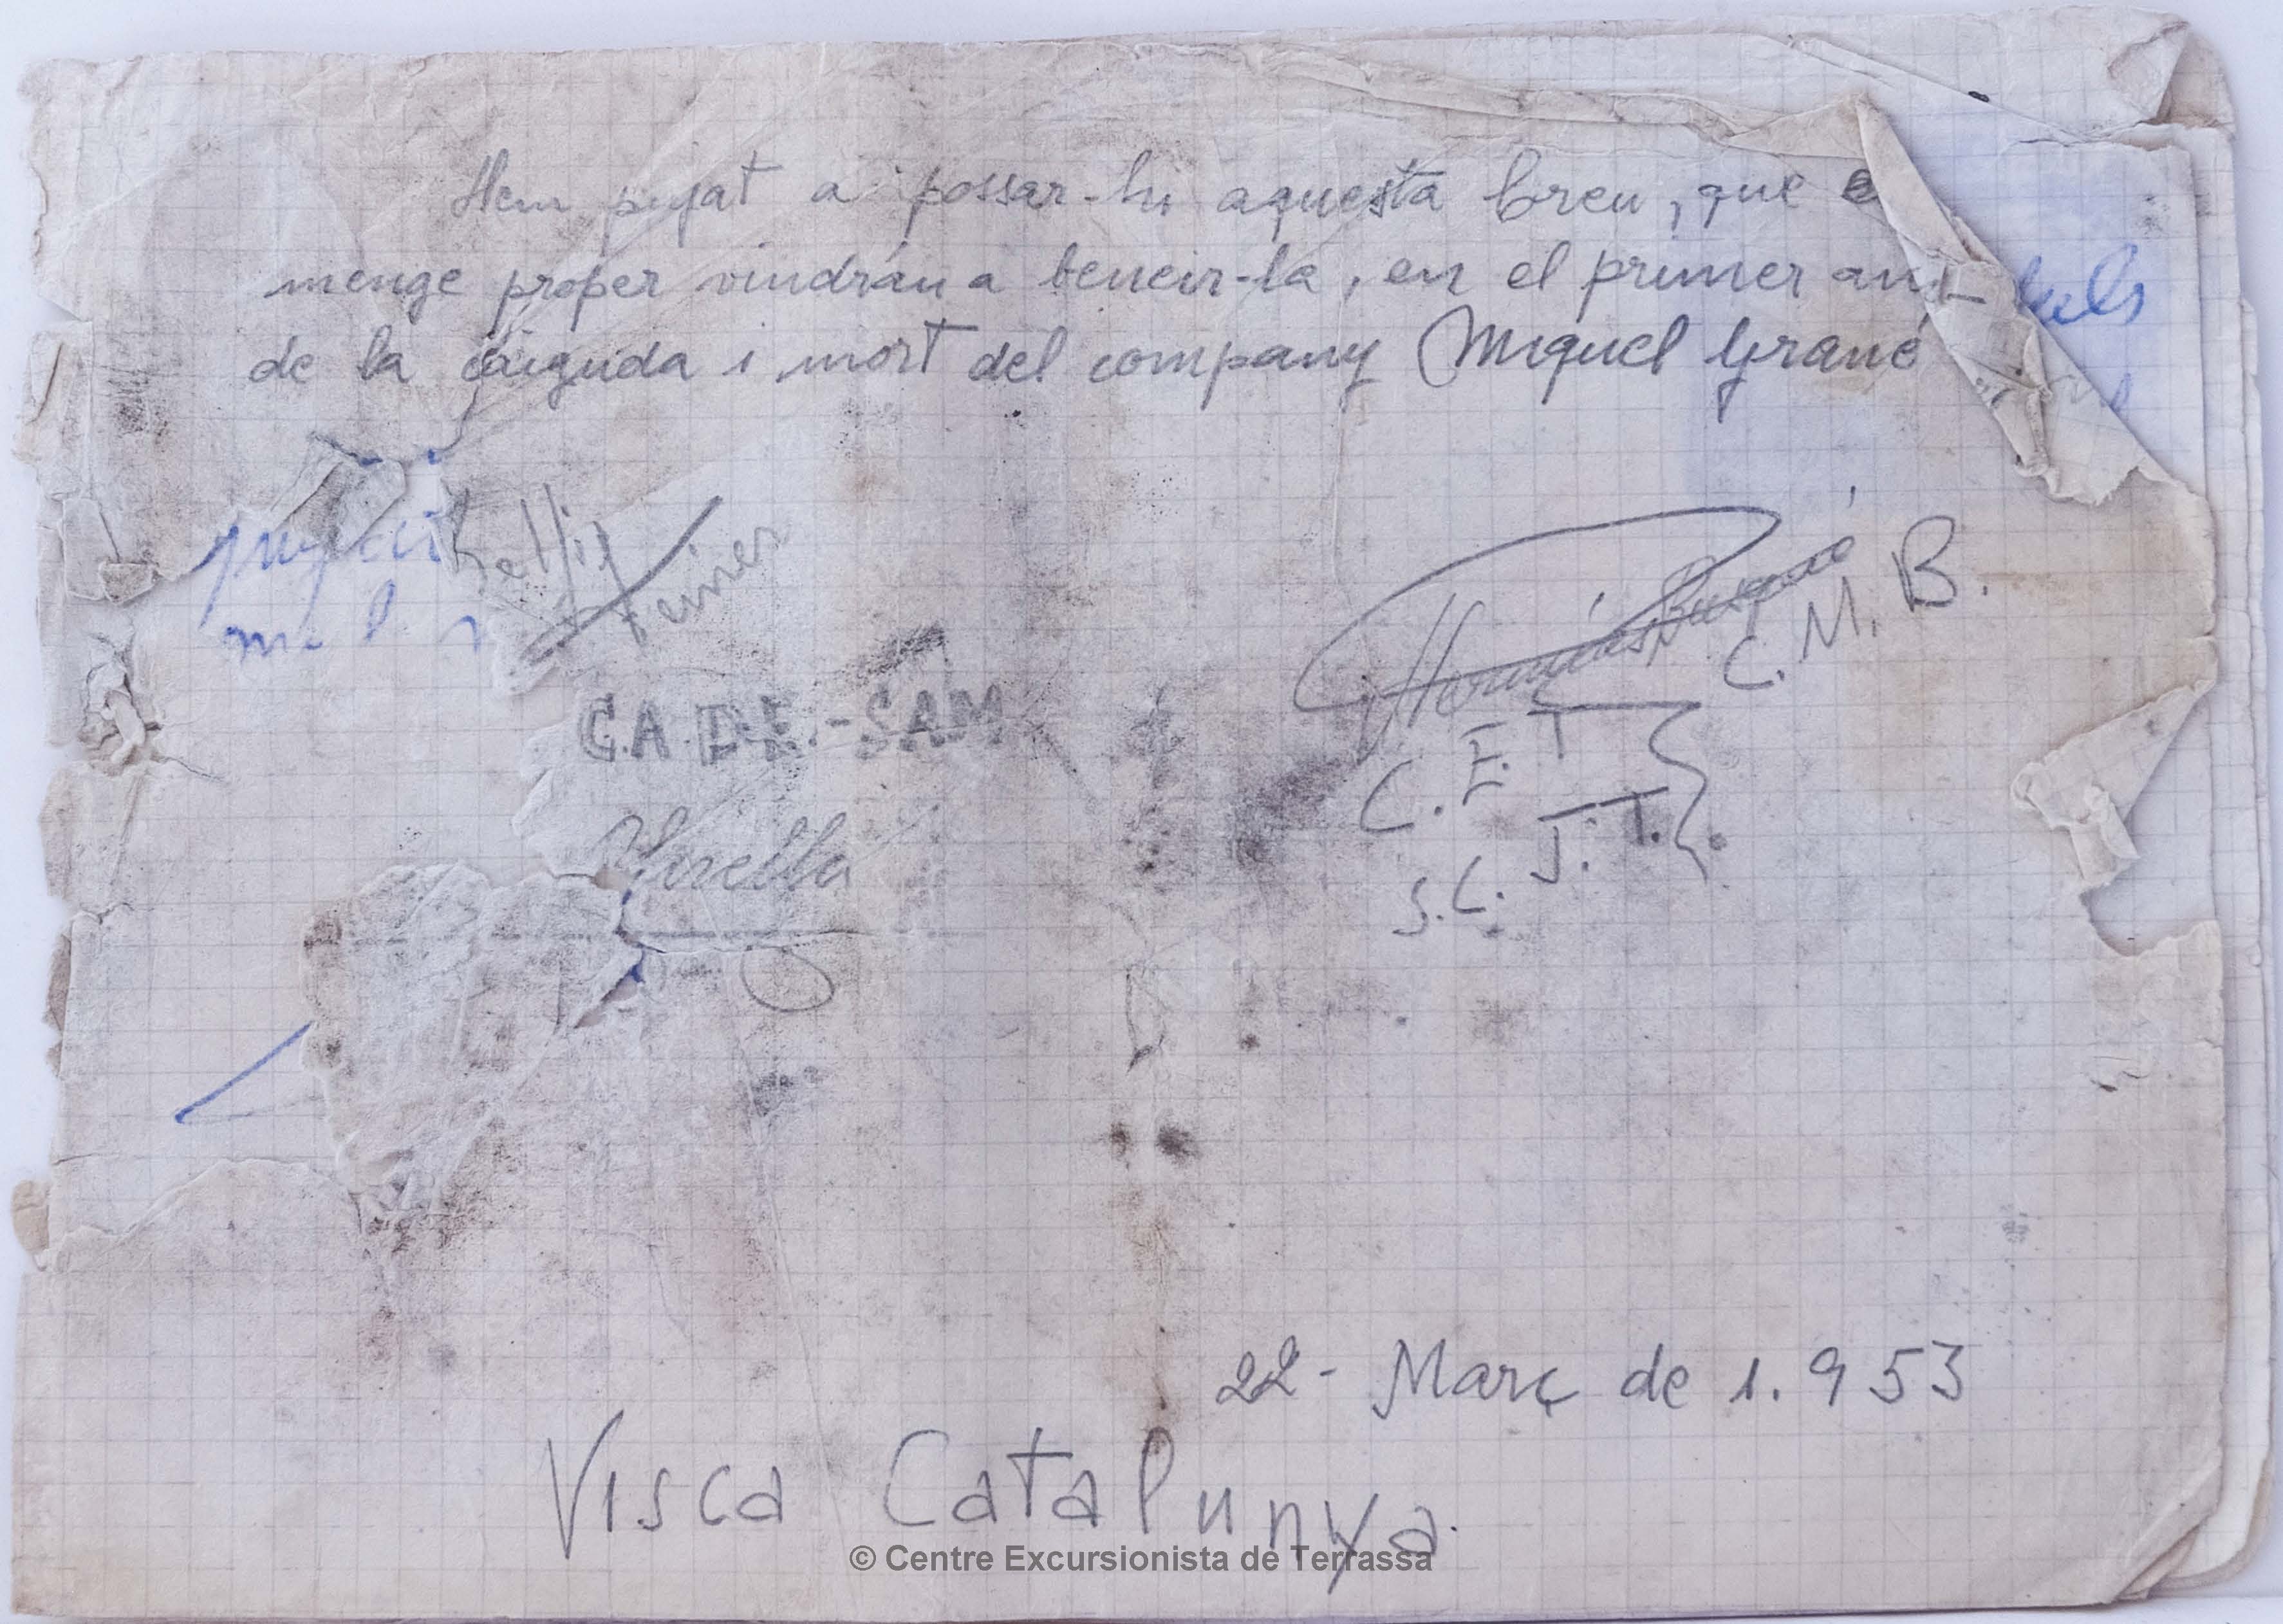 Hem pujat a possar-hi aquesta breu, que
menge proper vindrán a beneir-la, en el primer ani
de la caiguda i mort del company Miquel Grané
C. M. B.
C.A.D.E.-SAM
C. E. T
S.C. J. T.
22- Març de 1.953
Visca Catalunya
© Centre Excursionista de Terrassa